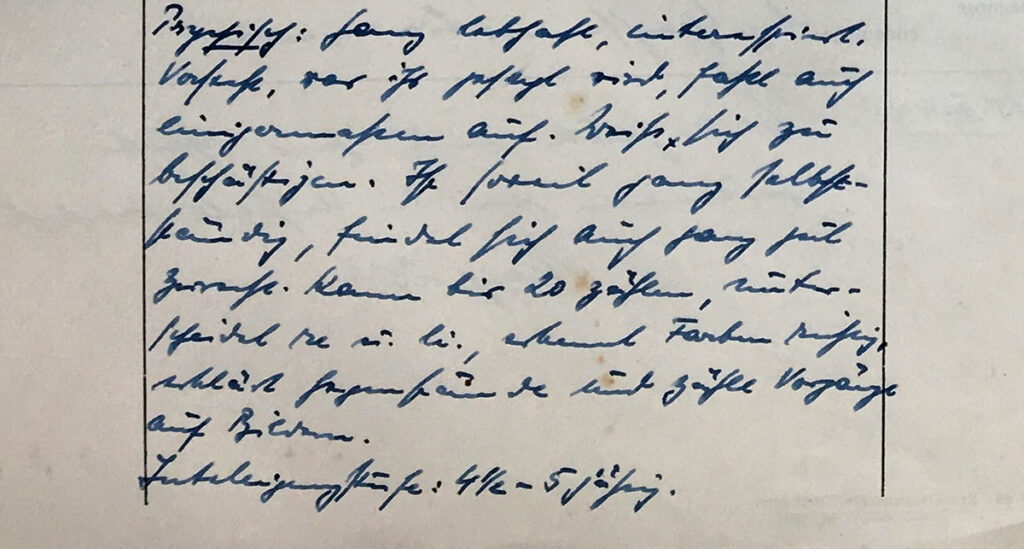 Psychisch: ganz lebhaft, interessiert.
Versteht, was ihr gesagt wird, faßt auch
einigermaßen auf. Weiß sich zu
beschäftigen. Ist soweit ganz selbst-
ständig, findet sich auch ganz gut
zurecht. Kann bis 20 zählen, unter-
scheidet re u. li., erkennt Farben richtig,
erklärt Gegenstände und zählt Vorgänge
auf Bildern.
Intelligenzstufe: 4½ – 5 jährig.